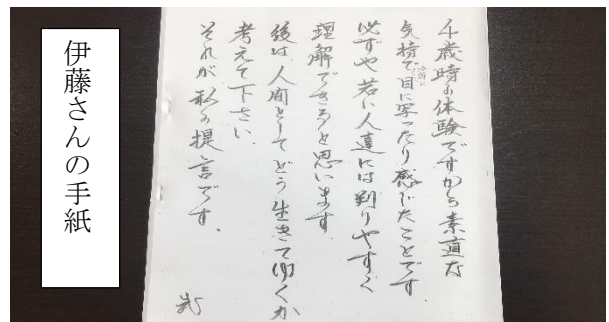 才歳時の体験ですから素直な
気持で目に写ったり感じたことです
必ずや若い人達には判りやすく
理解できると思います
後は人間としてどう生きて行くか
考えて下さい
それが私の提言です。
伊藤さんの手紙